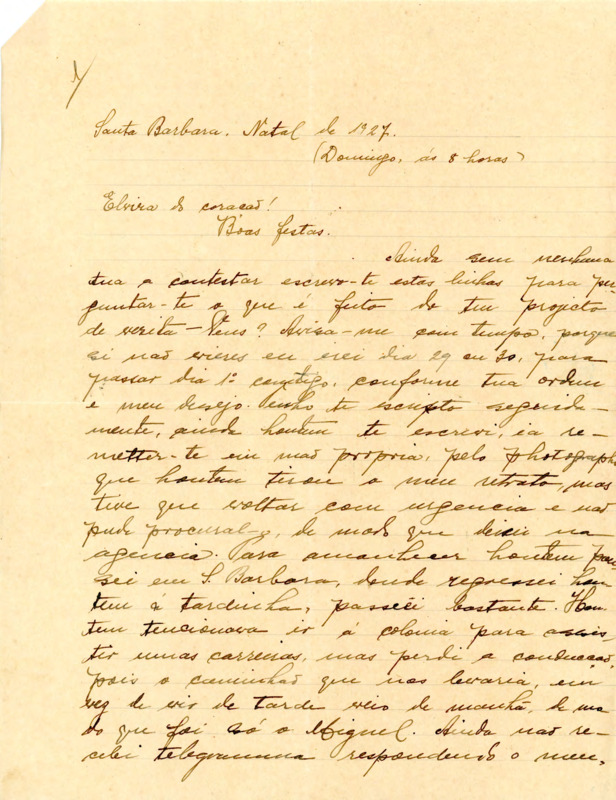 Santa Barbara. Natal de 1927.
(Domingo, ás 8 horas)
Elvira do coração!
Bôas festas.
Ainda sem nenhuma
tua a contestar escrevo-te estas linhas para per
guntar-te o que é feito do teu projecto
de visita - Vens? Avisa-me com tempo, porque
si não vieres eu irei dia 29 ou 30, para
passar dia 1º comtigo, conforme tua ordem
e meu desejo. Tenho te escripto seguida-
mente, ainda hontem te escrevi, ia re-
metter-te em mão propria, pelo photographo
que hontem tirou o meu retrato, mas
tive que voltar com urgencia e não
pude procural-o, de modo que deixei na
agencia. Para amanhecer hontem pou
sei em S. Barbara, donde regressei hon
tem á tardinha, passeei bastante. Hon
tem tencionava ir á colonia para assis
tir umas carreiras, mas perdi a conducção,
pois o caminhão que nos levaria, em
vez de vir de tarde veio de manhã, de mo
do que foi só o Miguel. Ainda não re-
cebi telegramma respondendo o meu,